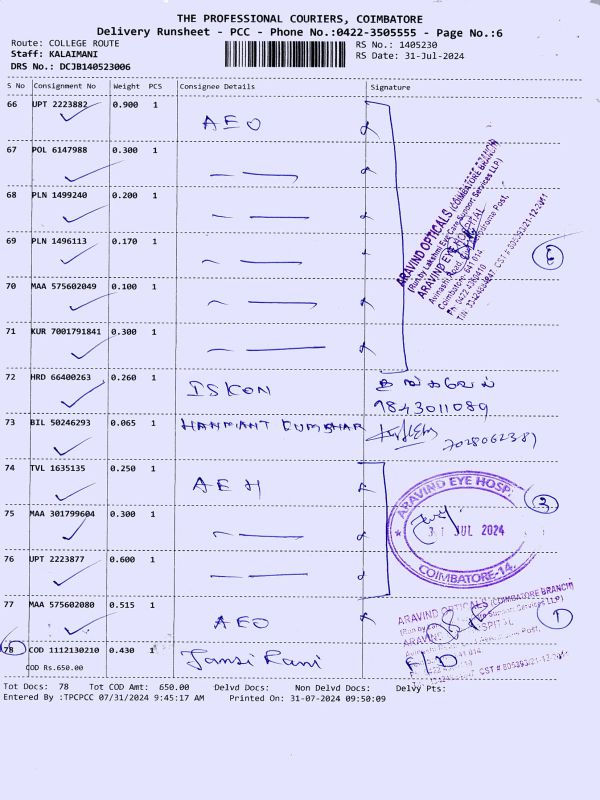 THE PROFESSIONAL COURIERS, COIMBATORE
Delivery Runsheet - PCC - Phone No.:0422-3505555 - Page No.:6
Route: COLLEGE ROUTE RS No.: 1405230
Staff: KALAIMANI RS Date: 31-Jul-2024
DRS No.: DCJB140523006
S No Consignment No Weight PCS Consignee Details Signature
66 UPT 2223882 0.900 1 AEO
67 POL 6147988 0.300 1
68 PLN 1499240 0.200 1
69 PLN 1496113 0.170 1
70 MAA 575602049 0.100 1
71 KUR 7001791841 0.300 1
ARAVIND OPTICALS (COIMBATORE BRANCH)
(Run by Lakshmi Eye Care Support Services LLP)
ARAVIND EYE HOSPITAL
Coimbatore- 641 014
6
72 HRD 66400263 0.260 1 ISKON
9843011089
73 BIL 50246293 0.065 1 HANMANT KUMBHAR
7028062381
74 TVL 1635135 0.250 1 AEH
75 MAA 301799604 0.300 1
76 UPT 2223877 0.600 1
ARAVIND EYE HOSP.
31 JUL 2024
COIMBATORE-14.
3
77 MAA 575602080 0.515 1 AEO
ARAVIND OPTICALS (COIMBATORE BRANCH)
(Run by Lakshmi Eye Care Support Services LLP)
1
78 COD 1112130210 0.430 1 Jansi Rani F/D
COD Rs.650.00
Tot Docs: 78 Tot COD Amt: 650.00 Delvd Docs: Non Delvd Docs: Delvy Pts:
Entered By :TPCPCC 07/31/2024 9:45:17 AM Printed On: 31-07-2024 09:50:09